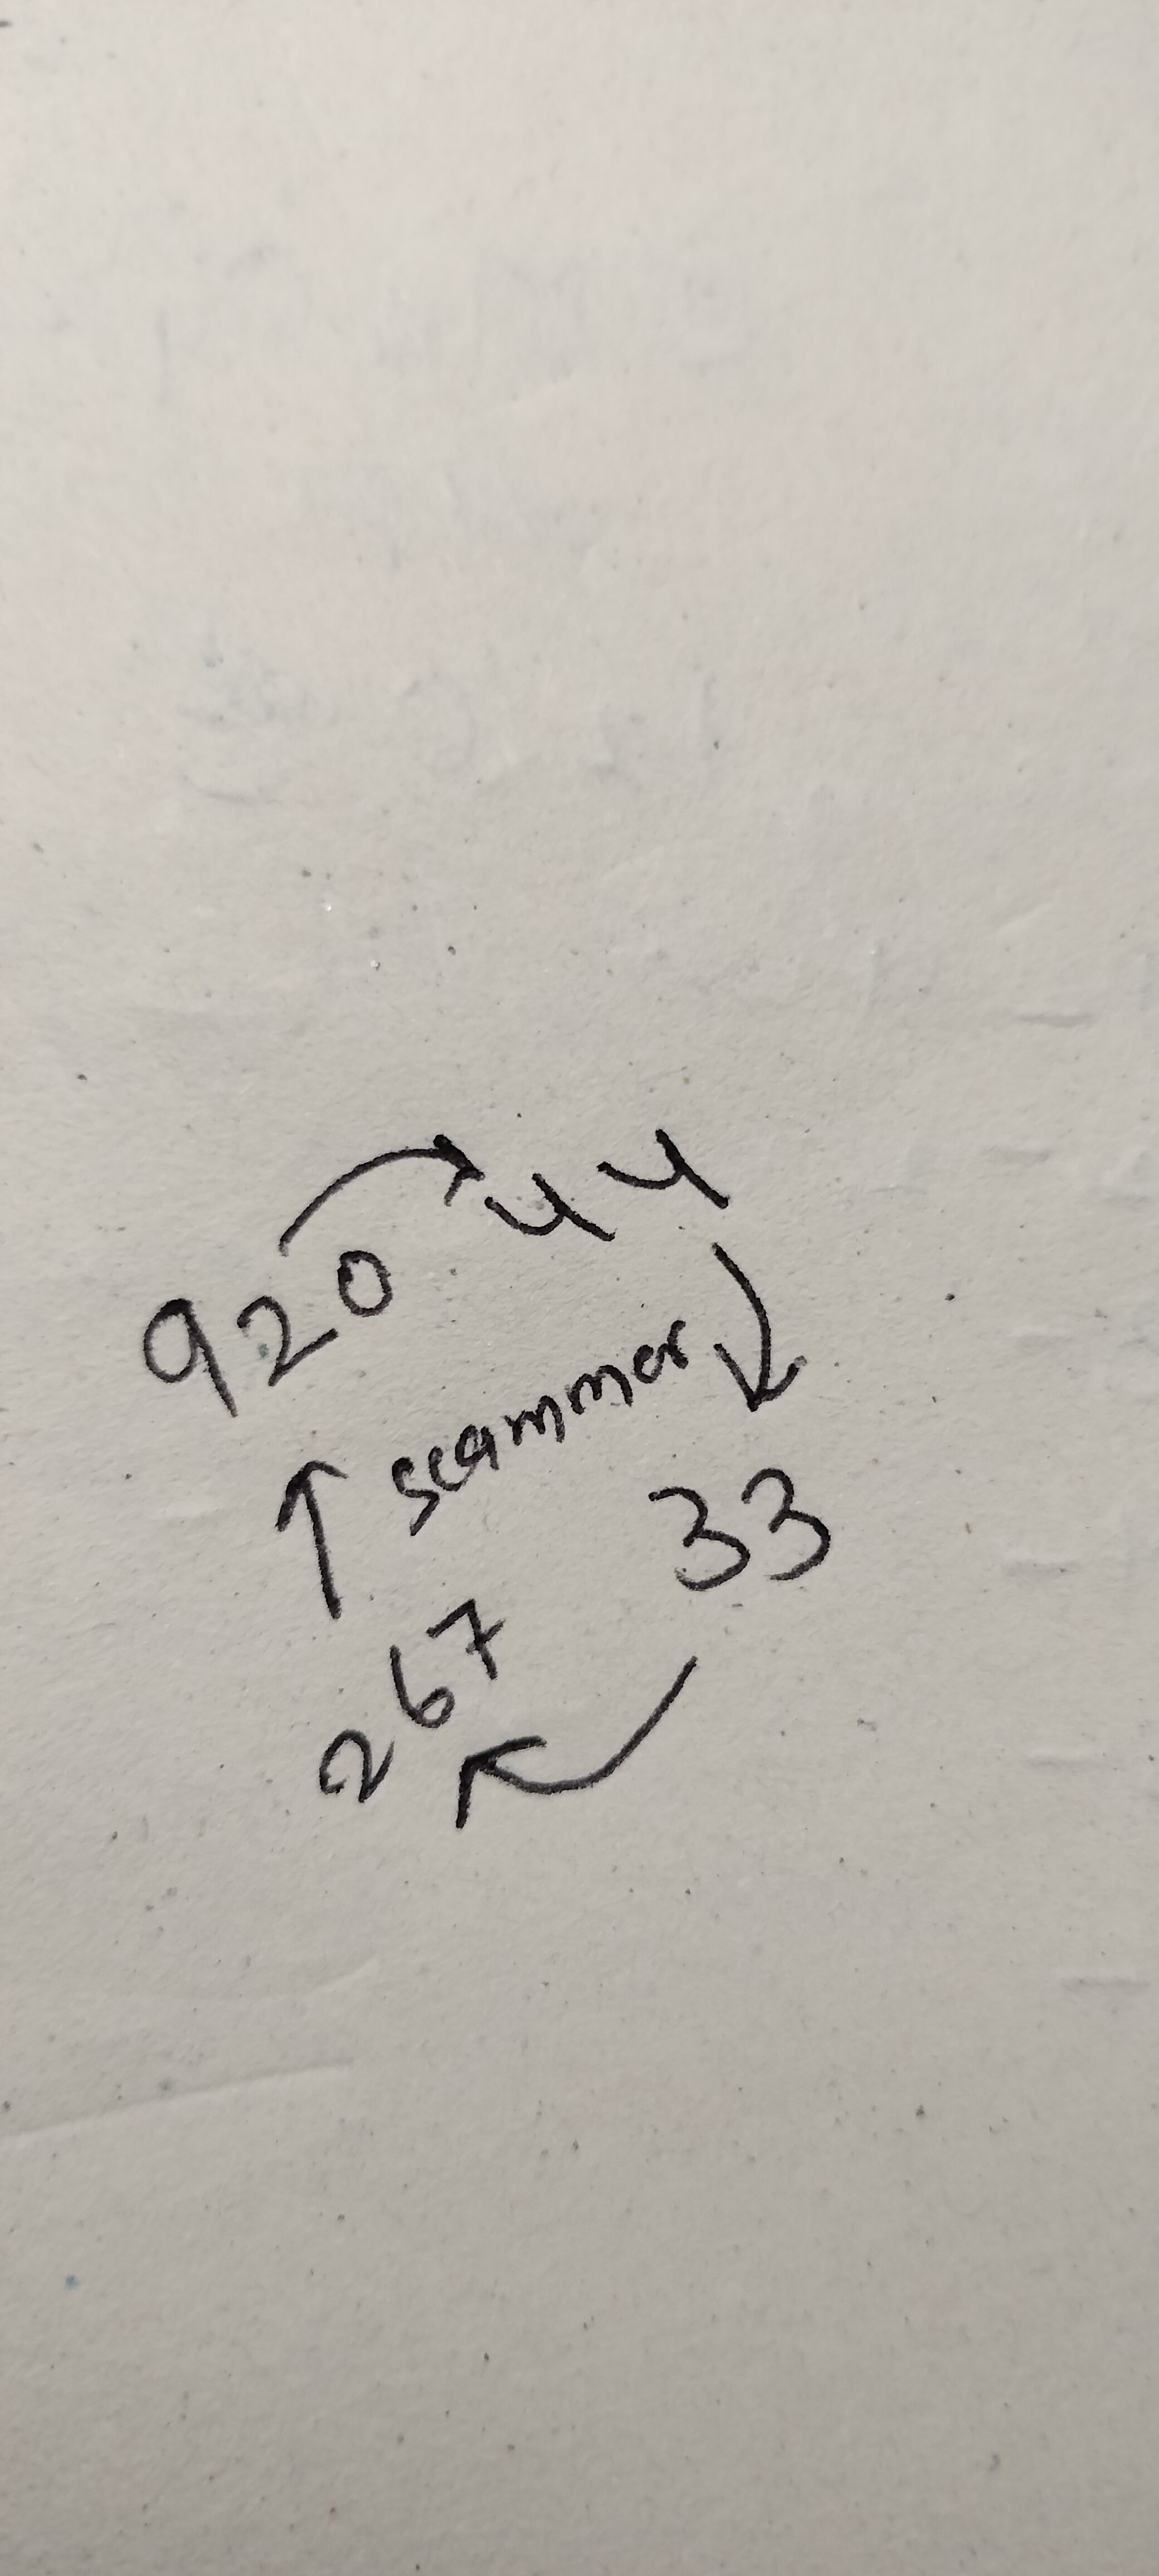 920 44
scammer
33
267